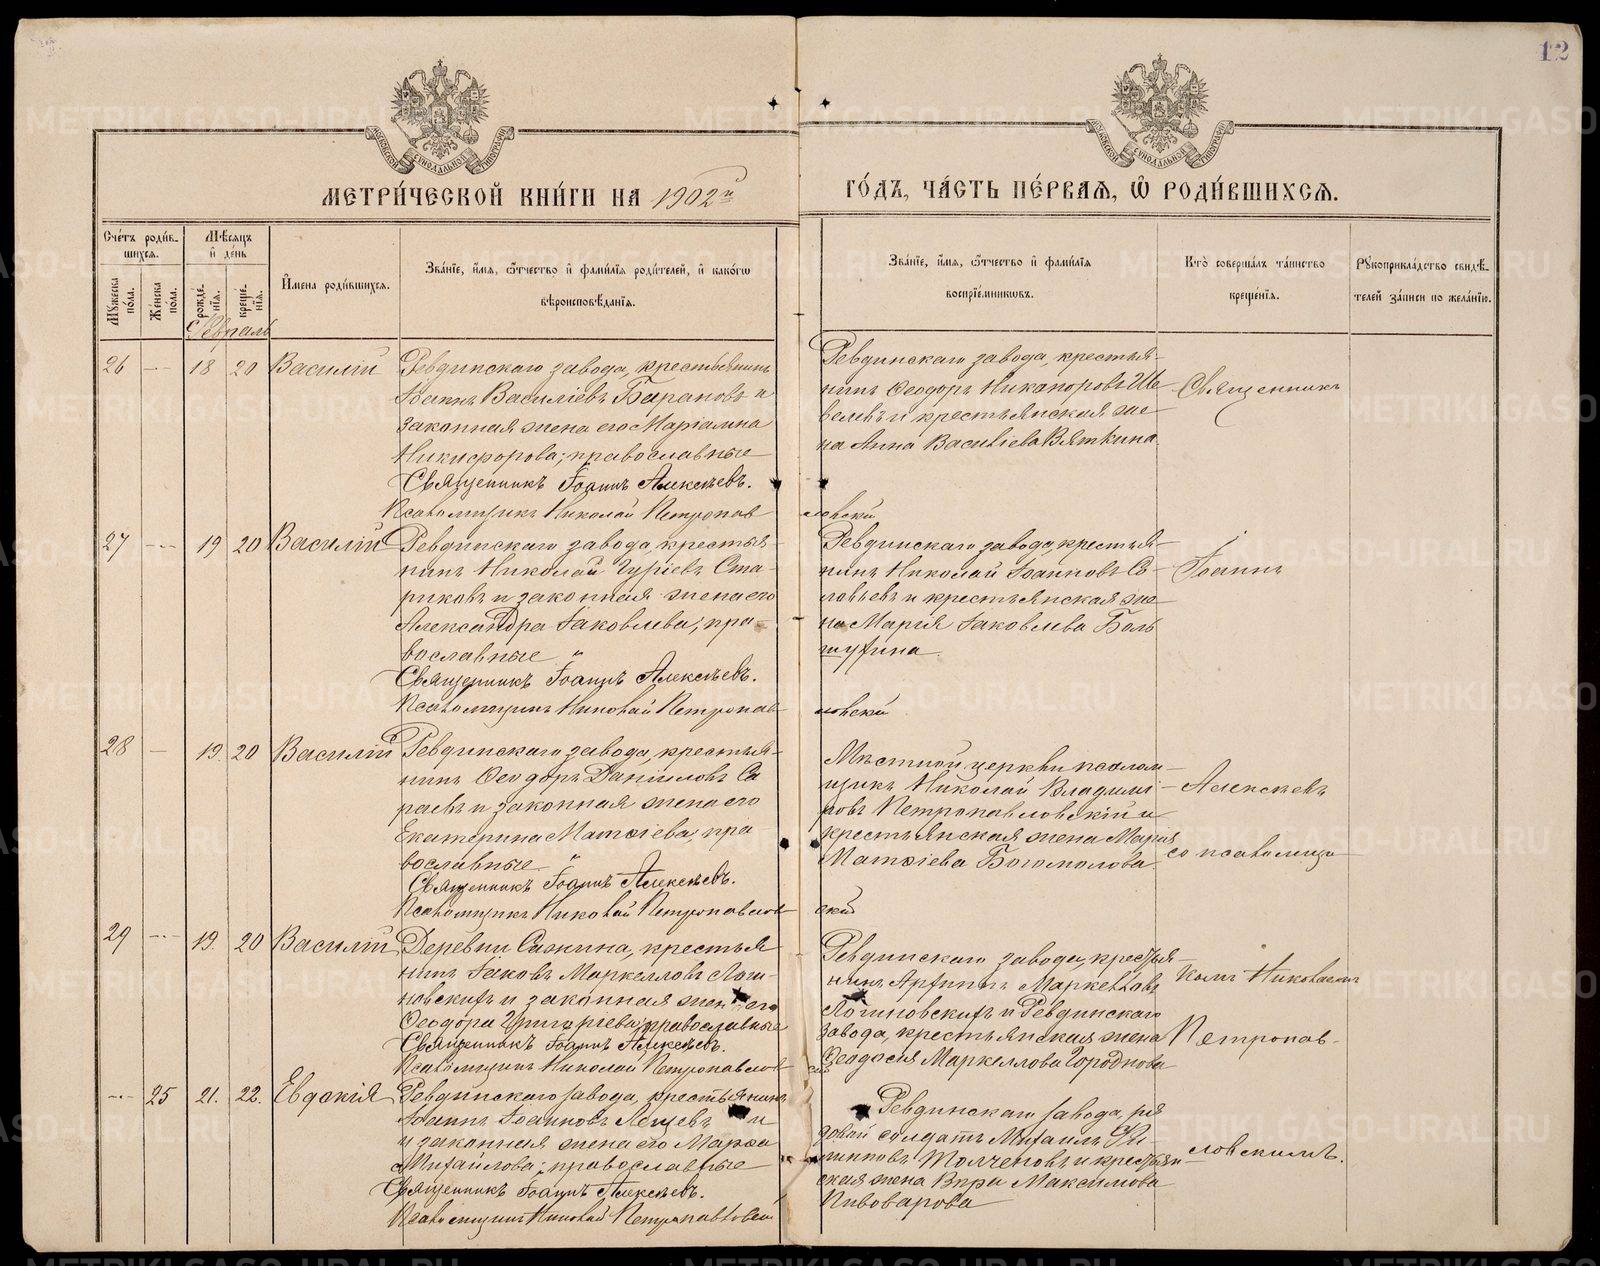 12
МЕТРИ́ЧЕСКОЙ КНИ́ГИ НА 1902й
ГО́ДЪ, ЧА́СТЬ ПЕ́РВАЯ, Ѡ РОДИ́ВШИХСЯ.
Счéтъ роди́в-
шихся.
Мѣ́сяцъ
и̂ де́нь
Мꙋжеска по́ла.
Же́нска по́ла.
рожде́-
нїя.
креще́-
нїя.
И̂мена роди́вшихся.
Зва́нїе, и̂мя, ѻ҆тчество и̂ фами́лїя роди́телей, и̂ како́гѡ
вѣроисповѣ́данїя.
Зва́нїе, и̂мя, ѻ҆тчество и̂ фами́лїя
воспрїе́мниковъ.
Кто̀ соверша́лъ та́инство
креще́нїя.
Рꙋкоприкла́дство свидѣ́-
телей за́писи по жела́нїю.
Февраль
26 — 18 20 Василій
Ревдинскаго завода, крестьянинъ
Іоаннъ Василіевъ Барановъ и
законная жена его Маріамна
Никифорова; православные
Священникъ Іоаннъ Алексѣевъ.
Псаломщикъ Николай Петропав
ловскій
Ревдинскаго завода, крестья-
нинъ Ѳеодоръ Никаноровъ Ше
велевъ и крестьянская же
на Анна Василіева Вяткина
Священникъ
27 — 19 20 Василій
Ревдинскаго завода, крестья-
нинъ Николай Гуріевъ Ста-
риковъ и законная жена его
Александра Іаковлева; пра-
вославные
Священникъ Іоаннъ Алексѣевъ.
Псаломщикъ Николай Петропав
ловскій
Ревдинскаго завода, крестья-
нинъ Николай Іоанновъ Со-
ловьевъ и крестьянская же
на Марія Іаковлева Боль
шухина
Іоаннъ
28 — 19. 20 Василій
Ревдинскаго завода, крестья-
нинъ Ѳеодоръ Даниловъ Са
раевъ и законная жена его
Екатерина Матѳіева; пра-
вославные
Священникъ Іоаннъ Алексѣевъ.
Псаломщикъ Николай Петропавлов
скій
Мѣстной церкви псалом-
щикъ Николай Владимі-
ровъ Петропавловскій и
крестьянская жена Марія
Матѳіева Богомолова
Алексѣевъ
со псаломщи
29 — 19. 20 Василій
Деревни Сажина, крестья
нинъ Іаковъ Маркелловъ Логи-
новскихъ и законная жена его
Ѳеодора Григорьева; православные
Священникъ Іоаннъ Алексѣевъ.
Псаломщикъ Николай Петропавлов
скій
Ревдинскаго завода, крестья-
нинъ Архиппъ Маркелловъ
Логиновскихъ и Ревдинскаго
завода, крестьянская жена
Ѳеодосія Маркеллова Городнова
комъ Николаемъ
Петропав-
— 25 21. 22. Евдокія
Ревдинскаго завода, крестьянинъ
Іоаннъ Іоанновъ Лещевъ и
и законная жена его Марѳа
Михайлова; православные
Священникъ Іоаннъ Алексѣевъ.
Псаломщикъ Николай Петропавловскій
Ревдинскаго завода, ря
довой солдатъ Михаилъ Фи-
липповъ Толченовъ и крестьян-
ская жена Вѣра Максимова
Пивоварова
ловскимъ.